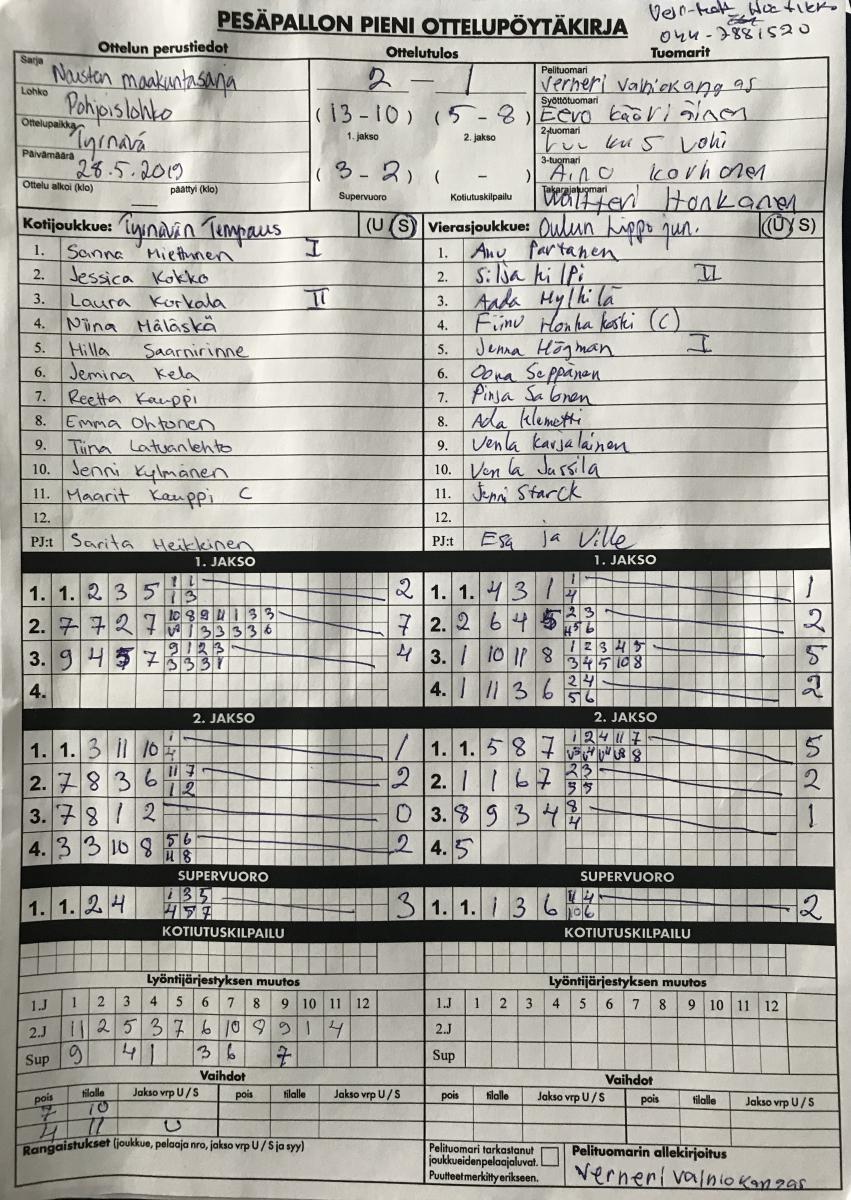 PESÄPALLON PIENI OTTELUPÖYTÄKIRJA
044-7881520
Ottelun perustiedot Ottelutulos Tuomarit
Sarja Naisten maakuntasarja
Lohko Pohjoislohko
Ottelupaikka Tyrnävä
Päivämäärä 28.5.2019
Ottelu alkoi (klo) päättyi (klo)
2 — 1
(13-10) (5-8)
1. jakso 2. jakso
(3-2) ( - )
Supervuoro Kotiutuskilpailu
Pelituomari Verneri Vainiokangas
Syöttötuomari Eero Kääriäinen
2-tuomari
3-tuomari Aino Korhonen
Takarajatuomari Waltteri Honkanen
Kotijoukkue: Tyrnävän Tempaus (U S) Vierasjoukkue: Oulun Lippo jun. (U S)
1. Sanna Miettunen I 1. Anu Partanen
2. Jessica Kokko 2. Silja Kilpi II
3. Laura Korkala II 3. Aada
4. Niina Määskä 4. Fiinu Honkakoski (C)
5. Hilla Saarnirinne 5. Jenna Högman I
6. Jemina Kela 6. Oona Seppänen
7. Reetta Kauppi 7. Pinja Salonen
8. Emma Ohtonen 8. Ada Klemetti
9. Tiina Latvanlehto 9. Venla Karjalainen
10. Jenni Kylmänen 10. Venla Jussila
11. Maarit Kauppi C 11. Jenni Starck
12. 12.
PJ:t Sarita Heikkinen PJ:t Esa ja Ville
1. JAKSO 1. JAKSO
1. 1. 2 3 5 1 1 2 1. 1. 4 3 1 1 1
1 3 4
2. 7 7 2 7 10 8 9 11 1 3 3 7 2. 2 6 4 5 2 3 2
1 3 3 3 3 6 5 6
3. 9 4 5 7 9 1 2 3 4 3. 1 10 11 8 1 2 3 4 5 5
3 3 3 1 3 4 5 10 8
4. 4. 1 11 3 6 2 4 2
5 6
2. JAKSO 2. JAKSO
1. 1. 3 11 10 1 1 1. 1. 5 8 7 1 2 4 11 7 5
4 V3 V4 V4 V8 8
2. 7 8 3 6 11 7 2 2. 1 1 6 7 2 3 2
1 2 5 5
3. 7 8 1 2 0 3. 8 9 3 4 8 1
4
4. 3 3 10 8 5 6 2 4. 5
11 8
SUPERVUORO SUPERVUORO
1. 1. 2 4 1 3 5 3 1. 1. 1 3 6 11 4 2
4 5 7 10 6
KOTIUTUSKILPAILU KOTIUTUSKILPAILU
Lyöntijärjestyksen muutos Lyöntijärjestyksen muutos
1.J 1 2 3 4 5 6 7 8 9 10 11 12 1.J 1 2 3 4 5 6 7 8 9 10 11 12
2.J 11 2 5 3 7 6 10 8 9 1 4 2.J
Sup 9 4 1 3 6 7 Sup
Vaihdot Vaihdot
pois tilalle Jakso vrp U / S pois tilalle Jakso vrp U / S pois tilalle Jakso vrp U / S pois tilalle Jakso vrp U / S
7 10
4 11 U
Rangaistukset (joukkue, pelaaja nro, jakso vrp U / S ja syy)
Pelituomari tarkastanut
joukkueidenpelaajaluvat.
Puutteet merkitty erikseen.
Pelituomarin allekirjoitus
Verneri Vainiokangas